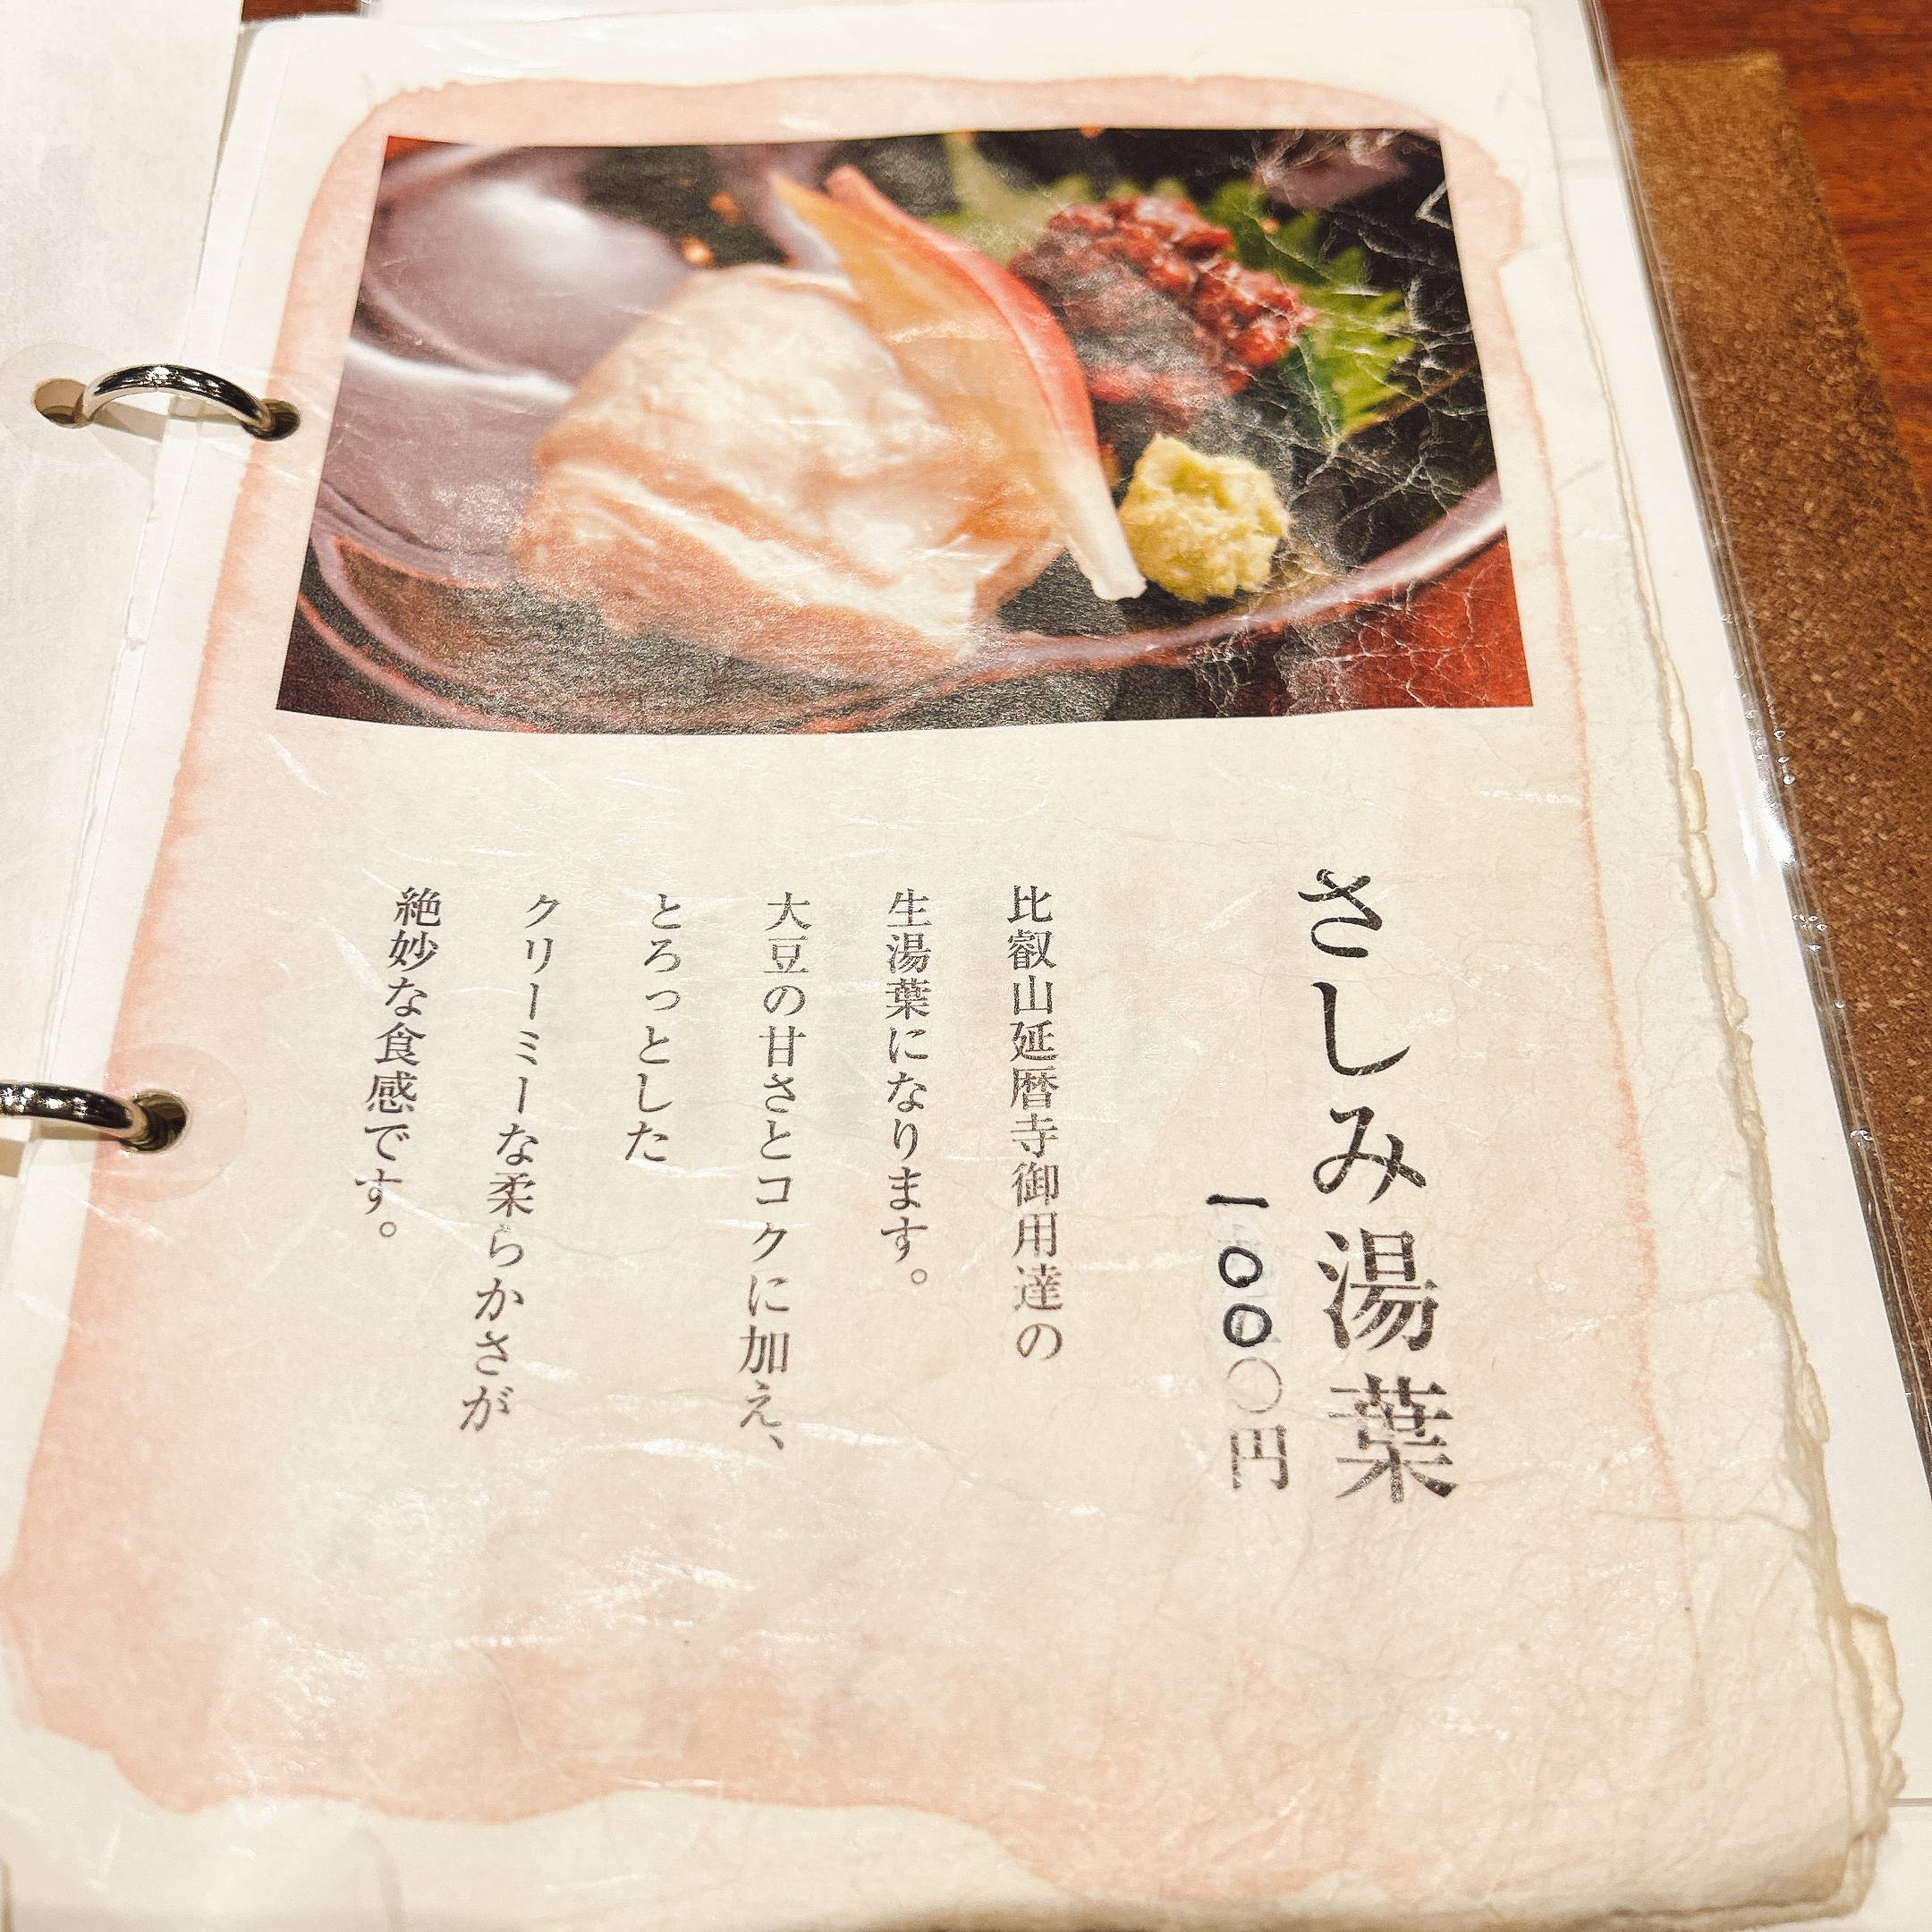 さしみ湯葉
一〇〇〇円
比叡山延暦寺御用達の
生湯葉になります。
大豆の甘さとコクに加え、
とろっとした
クリーミーな柔らかさが
絶妙な食感です。